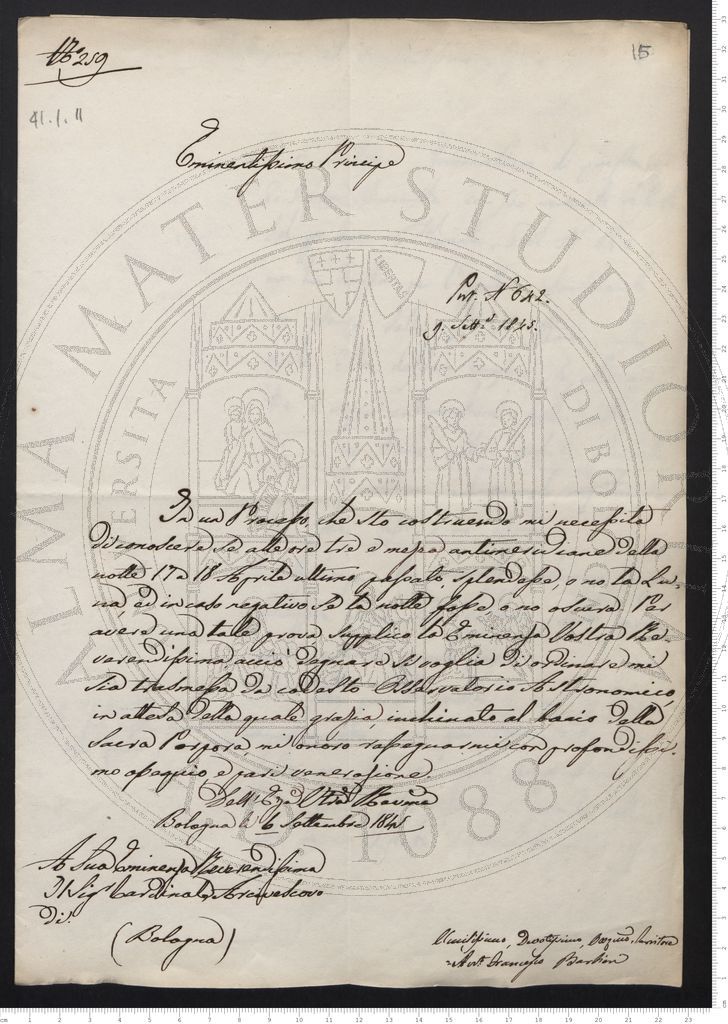 N° 259
15
41.1.11
Eminentissimo Principe
Prot. N 642.
9. Sett.e 1845.
In un Processo, che sto costruendo mi necessita
di conoscere se alle ore tre e mezza antimeridiane della
notte 17 a 18 Aprile ultimo passato, splendesse, o no la Lu-
na, ed in caso negativo se la notte fosse, o no oscura. Per
avere una tale prova supplico la Eminenza Vostra Re
verendissima, acciò degnare si voglia di ordinare mi
sia trasmessa da codesto Osservatorio Astronomico,
in attesa della quale grazia, inchinato al bacio della
Sacra Porpora, mi onoro rassegnarmi con profondissi-
mo ossequio, e pari venerazione
Dell'Eza Vtra Revma
Bologna li 6 Settembre 1845
A Sua Eminenza Reverendissima
Il Sigr Cardinale Arcivescovo
di
(Bologna)
Umilissimo, Devotissimo, Servitore
Avv. Francesco Barbieri
ALMA MATER STUDIORUM
UNIVERSITA DI BOLOGNA
LIBERTAS
A.D. 1088